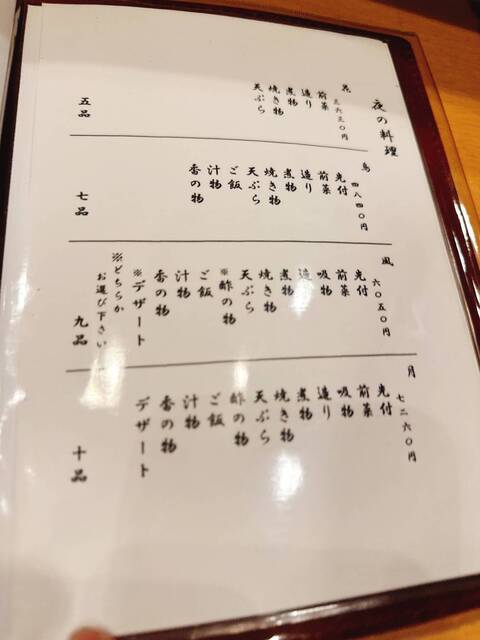 夜の料理
花 三六三〇円
前菜
造り
煮物
焼き物
天ぷら
五品
鳥 四八四〇円
先付
前菜
造り
煮物
焼き物
天ぷら
ご飯
汁物
香の物
七品
風 六〇五〇円
先付
前菜
吸物
造り
煮物
焼き物
天ぷら
※酢の物
ご飯
汁物
香の物
※デザート
※どちらか
お選び下さい
九品
月 七二六〇円
先付
前菜
吸物
造り
煮物
焼き物
天ぷら
酢の物
ご飯
汁物
香の物
デザート
十品